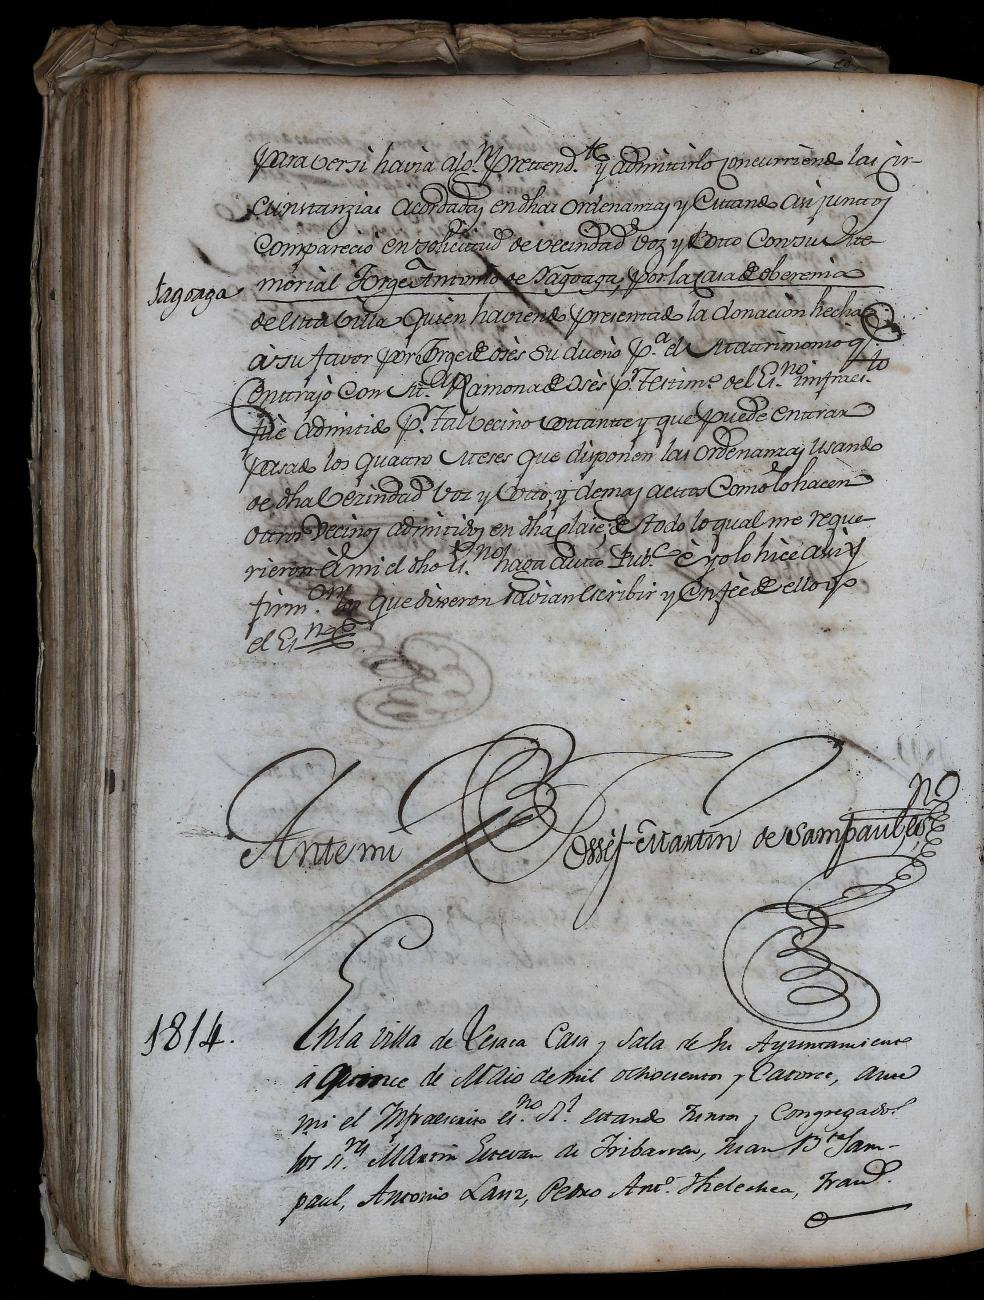 para ver si havia algn. prettendte. y admitirlo concurriendo las cir-
cunstanzias acordadas en dhas ordenanzas y estando asi juntos
comparecio en solicitud de vecindad voz y votto con su Me-
morial Jorge Antonio de Yagoaga, por la casa de oberenia
Yagoaga
de esta villa quien haviendo presentado la donacion hecha
à su favor por Jorge de oses su dueño pa. el Matrimonio q.
contrajo con Ma. Ramona de oses pr. testimo. del Esno. infraesto.
fuè admitido pr. tal vecino votante y que puede entrar
pasado los quattro Meses que disponen las ordenanzas usando
de dha vezindad voz y votto, y demas actos como lo hacen
otros vecinos admitidos en dha clase; de todo lo qual me reque-
rieron à mi el dho Esno. haga autto pubco. è yo lo hice asi y
firmon. los que dixeron savian escribir y en feè de ello yo
el Esno.
Ante mi Josseph Martin de Sampaul esno.
1814.
En la villa de Vera casa y sala de su Ayuntamiento
à quince de Maio de mil ochocientos y catorce, ante
mi el Infraescrito esno. Rl. estando juntos y congregados
los srs. Martin Estevan de Iribarren, Juan Bta. Sam-
paul, Antonio Lanz, Pedro Anto. Thelechea,